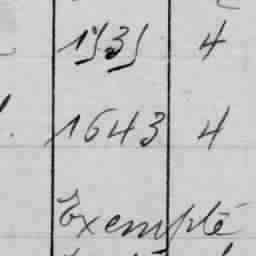 1535 4
1643 4
Exempté